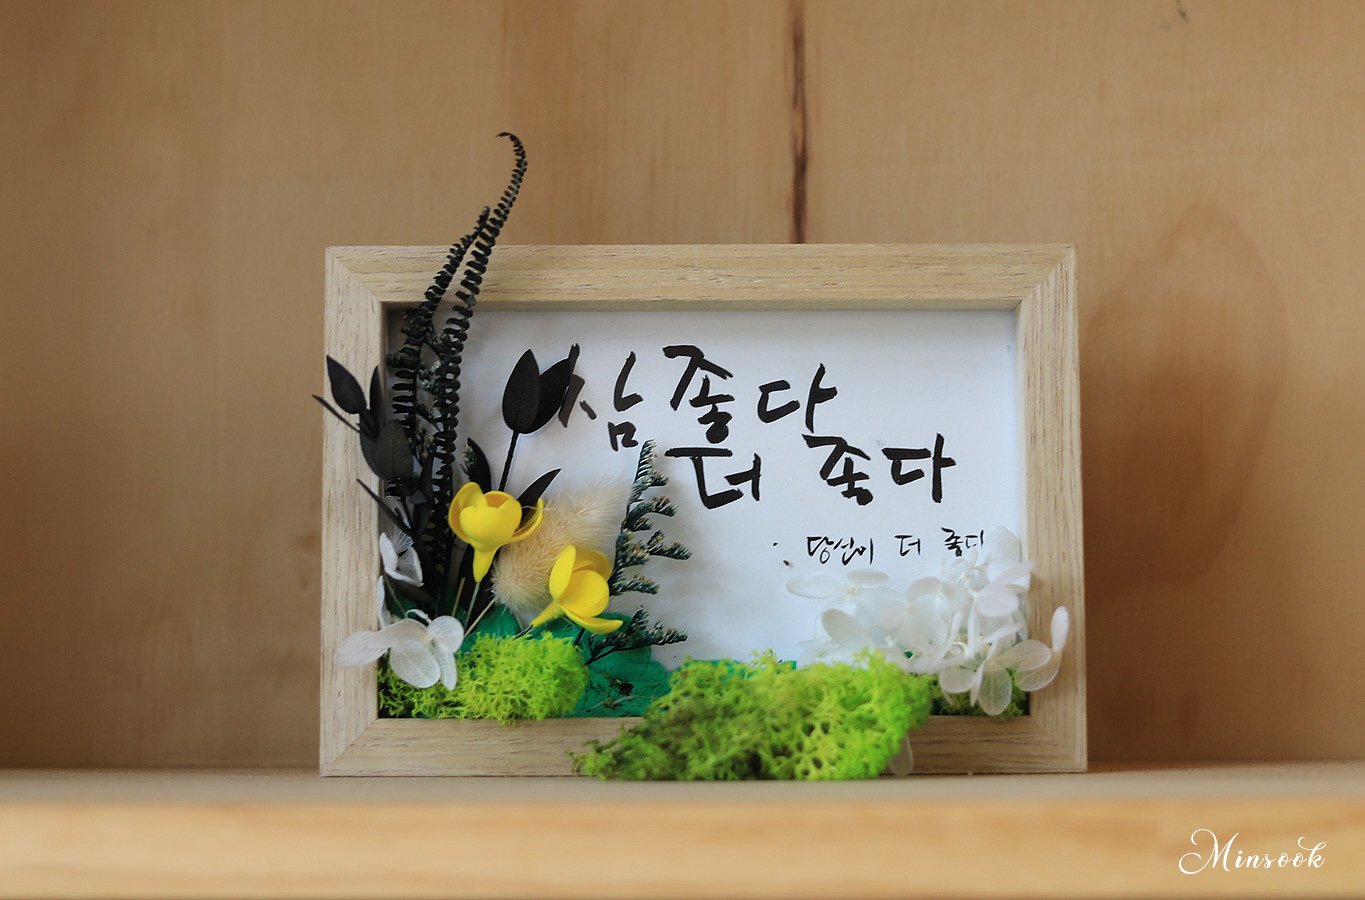 좋다
더 좋다
당신이 더 좋다
Minsook